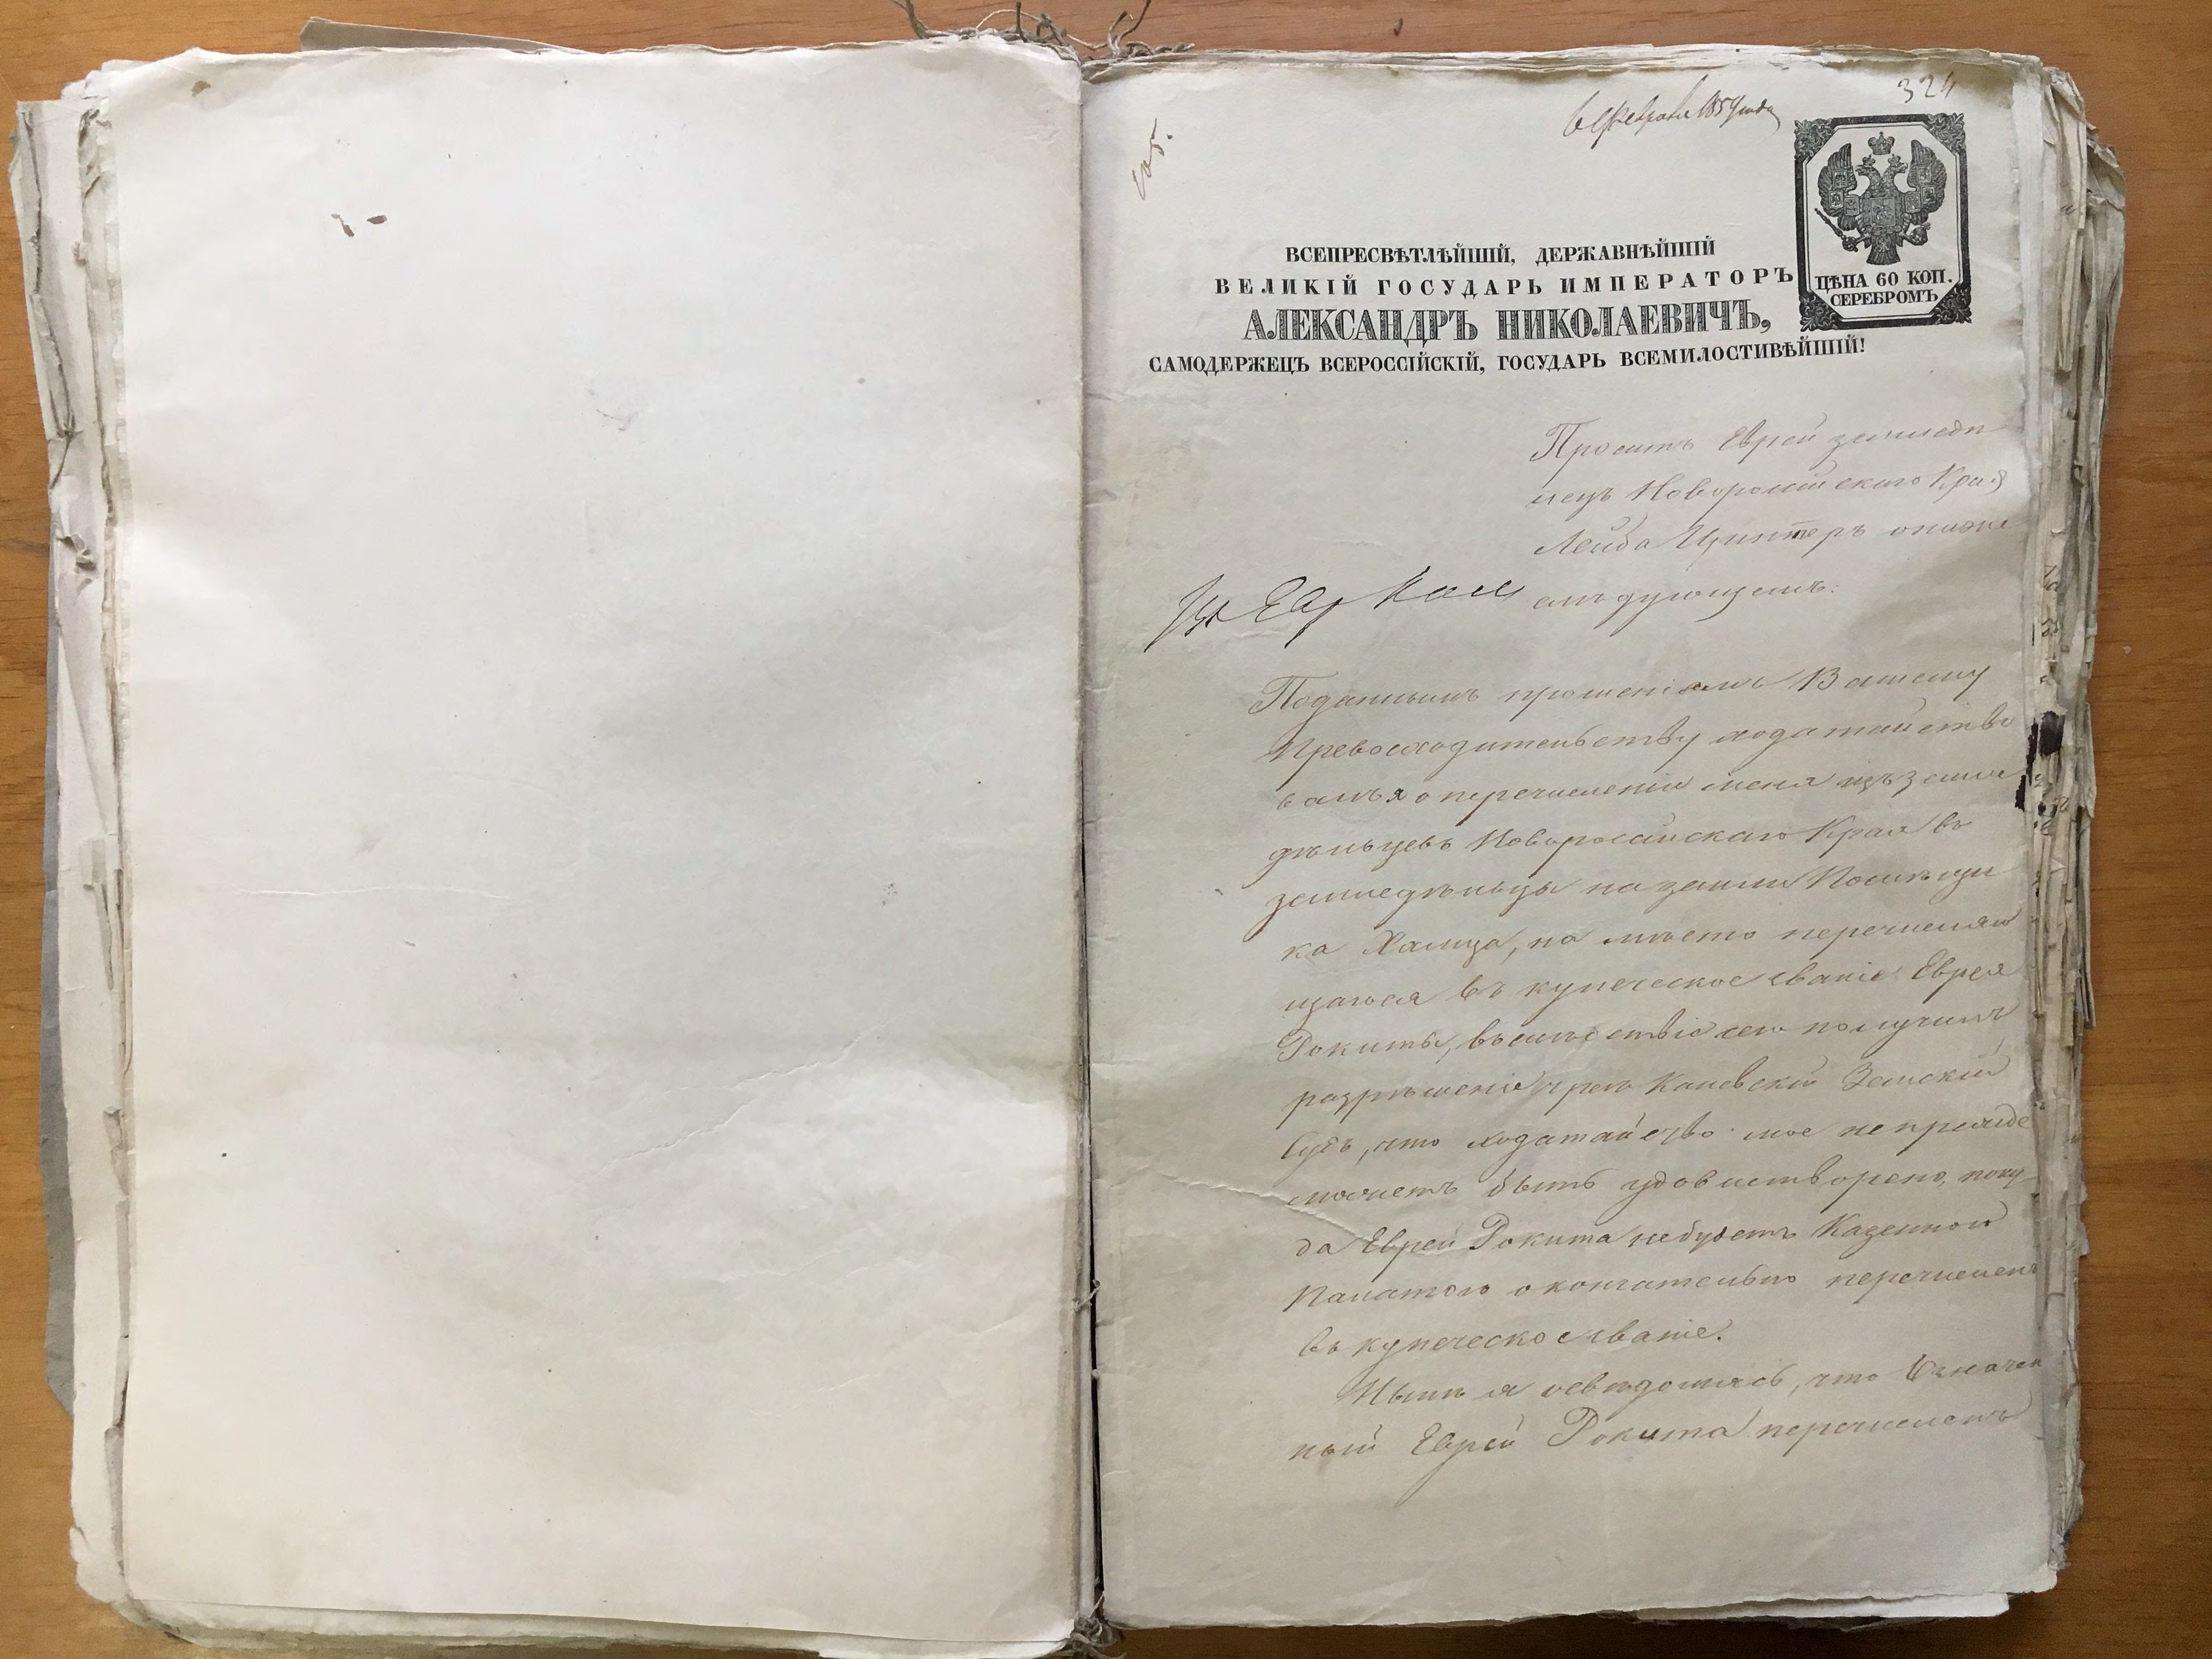 324
Февраля 1859 года
ЦѢНА 60 КОП.
СЕРЕБРОМЪ
ВСЕПРЕСВѢТЛѢЙШІЙ, ДЕРЖАВНѢЙШІЙ
ВЕЛИКІЙ ГОСУДАРЬ ИМПЕРАТОРЪ
АЛЕКСАНДРЪ НИКОЛАЕВИЧЪ,
САМОДЕРЖЕЦЪ ВСЕРОССІЙСКІЙ, ГОСУДАРЬ ВСЕМИЛОСТИВѢЙШІЙ!
Проситъ Еврей земледѣ
лецъ Новоросійскаго Края
Лейба о ниже
слѣдующемъ:
Поданнымъ прошеніемъ Вашему
Превосходительству ходатайство
валъ я о перечисленіи меня изъ земле
дѣльцевъ Новоросійскаго Края въ
земледѣльцы на земли Помѣщи
ка Халица, на мѣсто перечисляю
щагося въ купеческое званіе Еврея
Рокиты, въ слѣдствіе сего получилъ
разрѣшеніе чрезъ Каневскій Земскій
Судъ, что ходатайство мое не прежде
можетъ быть удовлетворено, поку
да Еврей Рокита небудетъ Казенною
Палатою окончательно перечисленъ
въ купеческое званіе.
Нынѣ я освѣдомился, что означен
ный Еврей Рокита перечисленъ